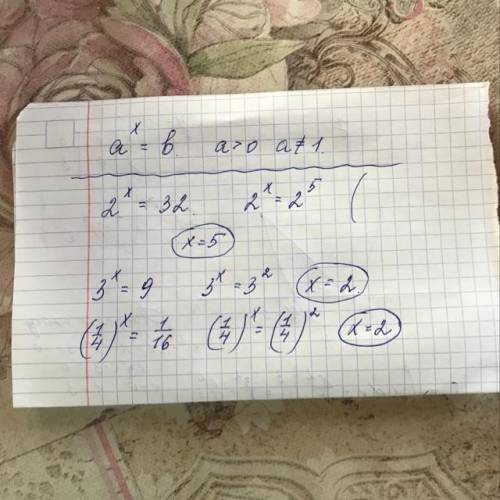 aˣ = b. a>0 a≠1.
2ˣ = 32. 2ˣ = 2⁵ (
x=5
3ˣ = 9 3ˣ = 3² x=2.
(1/4)ˣ = 1/16 (1/4)ˣ = (1/4)² x=2